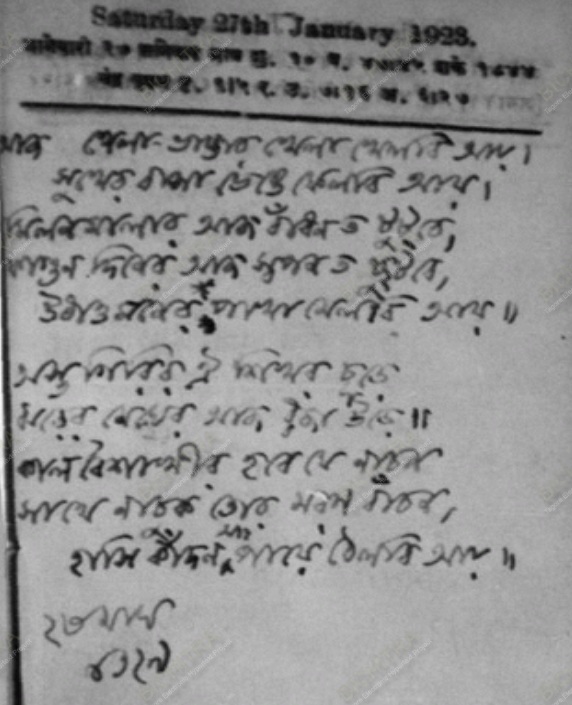 Saturday 27th January 1923.
আজ খেলা-ভাঙার খেলা খেলবি আয়।
সুখের বাসা ভেঙে ফেলবি আয়।
মিলনমালার আজ বাঁধন ত টুটবে,
ফাগুন দিনের আজ স্বপন ত ছুটবে,
উধাও মনের পাখা মেলবি আয়॥
অস্ত গিরির ঐ শিখর চূড়ে
ঝড়ের মেঘের আজ ধ্বজা উড়ে॥
কাল বৈশাখীর হবে যে নাচন
সাথে নাচুক তোর মরণ বাঁচন,
হাসি কাঁদন পায়ে ঠেলবি আয়॥
২৩ মাঘ